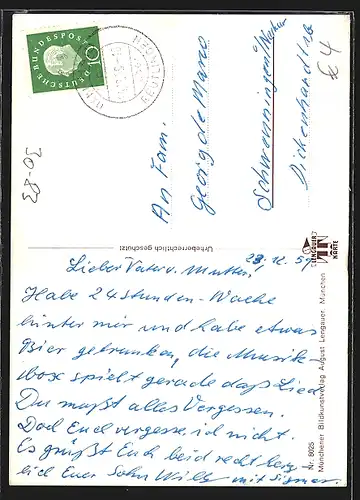 DEUTSCHE BUNDESPOST
10
An Fam.
Georg de Marco
Schwenningen/Neckar
Dickenhardtstr.
64
30-83
Urheberrechtlich geschützt!
LENGAUER
KARTE
Nr. 8025
Münchener Bildkunstverlag August Lengauer, München
12. 59
Lieber Vater u. Mutter!
Habe 24 Stunden-Wache
hinter mir und habe etwas
Bier getrunken, die Musik
box spielt gerade daß Lied
Du mußt alles Vergessen.
Doch Euch vergesse ich nicht.
Es grüßt Euch beid recht herz-
lich Euer Sohn Willy mit